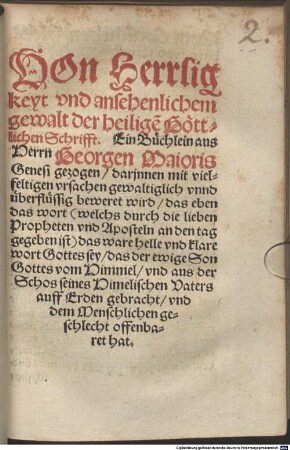 2.
VOn Herrlig
keyt vnd ansehenlichem
gewalt der heiligẽ Göttlichen Schrifft. Ein Büchlein aus
Herrn Georgen Maioris
Genesi gezogen / darjnnen mit viel-
feltigen vrsachen gewaltiglich vnnd
überflüssig beweret wird / das eben
das wort (welchs durch die lieben
Propheten vnd Aposteln an den tag
gegeben ist) das ware helle vnd klare
wort Gottes sey / das der ewige Son
Gottes vom Himmel / vnd aus der
Schos seines Himelischen Vaters
auff Erden gebracht / vnd
dem Menschlichen ge-
schlecht offenba-
ret hat.